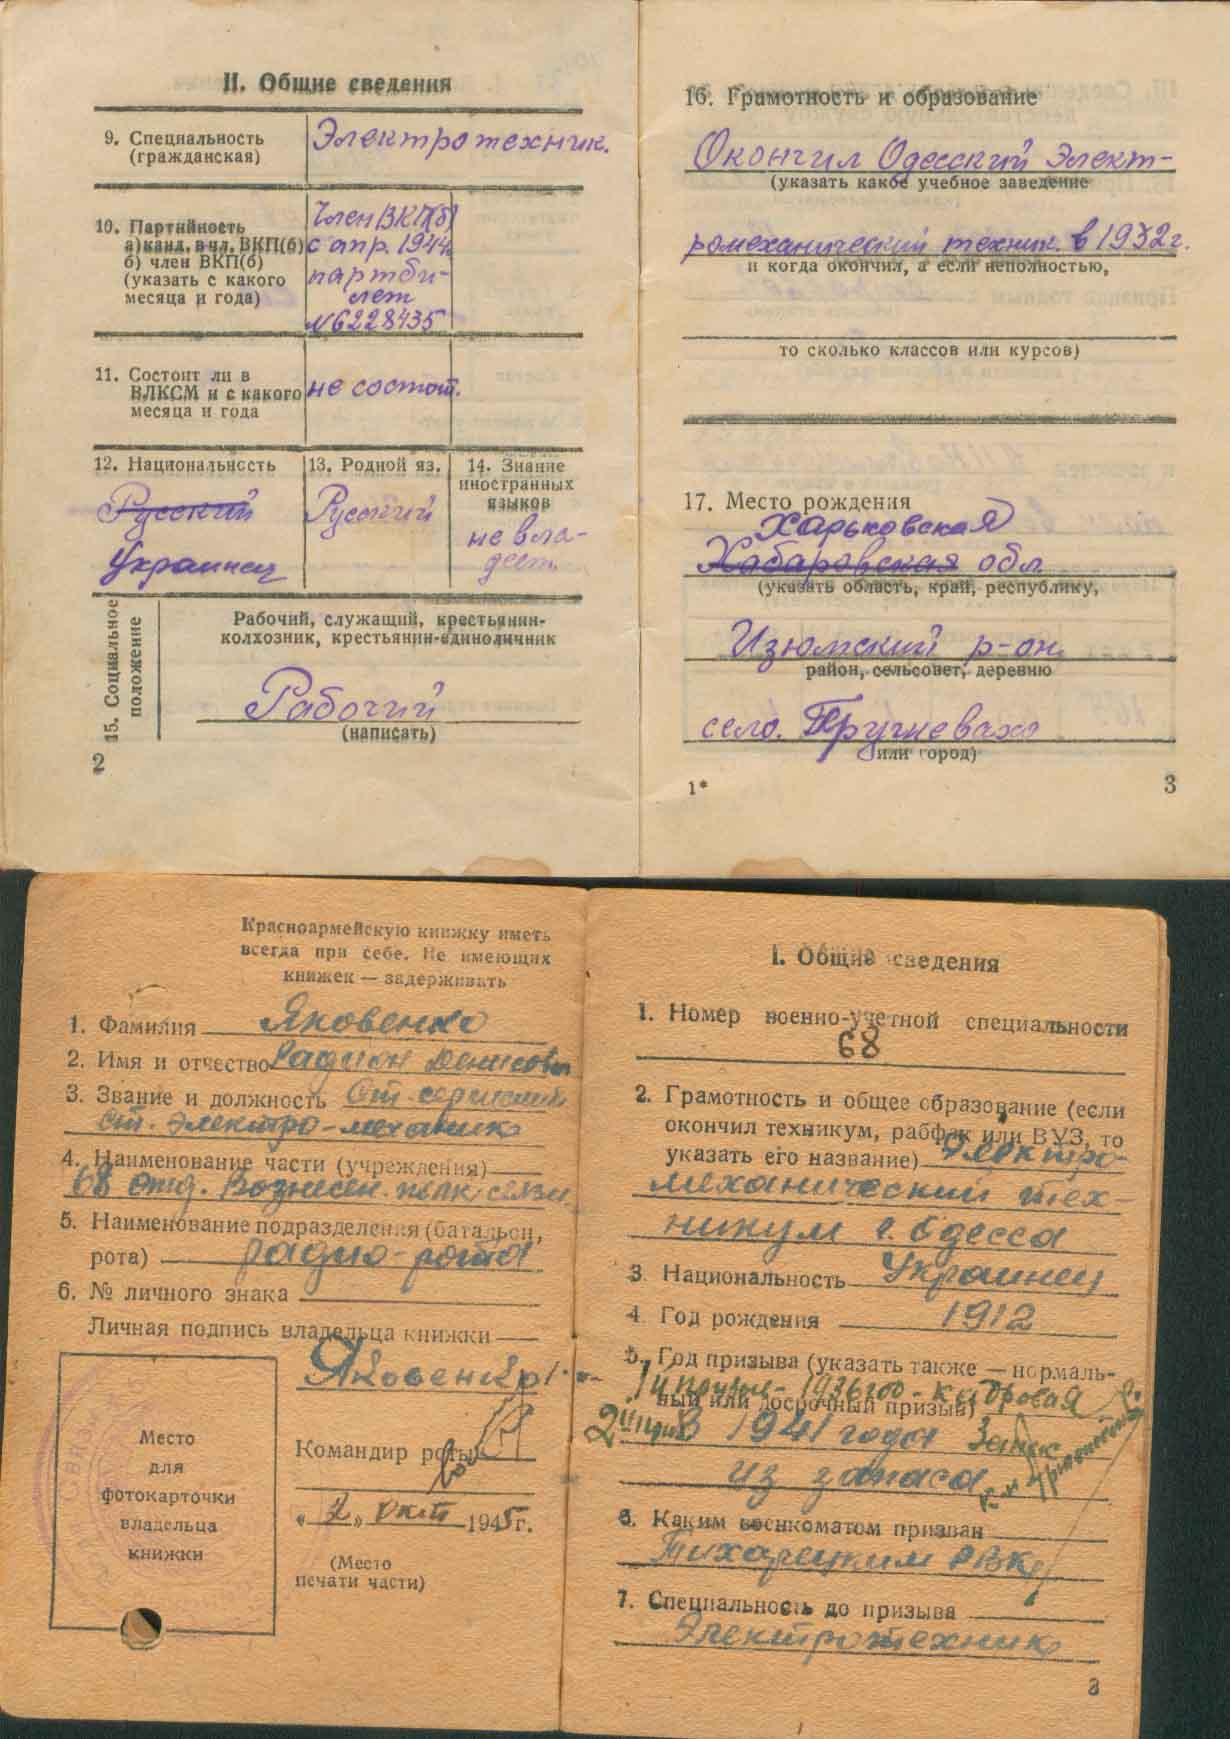 II. Общие сведения
9. Специальность
(гражданская)
Электротехник.
10. Партийность
а) канд. в чл. ВКП(б)
б) член ВКП(б)
(указать с какого
месяца и года)
Член ВКП(б)
с апр. 1944
партби-
лет
№6228435
11. Состоит ли в
ВЛКСМ и с какого
месяца и года
не состоит.
12. Национальность
Русский
Украинец
13. Родной яз.
Русский
14. Знание
иностранных
языков
не вла-
деет
15. Социальное
положение
Рабочий, служащий, крестьянин-
колхозник, крестьянин-единоличник
Рабочий
(написать)
2
16. Грамотность и образование
Окончил Одесский Элект-
(указать какое учебное заведение
ромеханический техник. в 1932г.
и когда окончил, а если неполностью,
то сколько классов или курсов)
17. Место рождения
Харьковская
Хабаровская обл.
(указать область, край, республику,
Изюмский р-он.
район, сельсовет, деревню
село.
или город)
1*
3
Красноармейскую книжку иметь
всегда при себе. Не имеющих
книжек — задерживать
1. Фамилия Яковенко
2. Имя и отчество Радион Денисович
3. Звание и должность Ст. сержант
ст. электро-механик
4. Наименование части (учреждения)
68 отд. Вознесен. полк связи
5. Наименование подразделения (батальон,
рота) радио-рота
6. № личного знака
Личная подпись владельца книжки
Яковенко
Место
для
фотокарточки
владельца
книжки
СВЯЗИ
Командир роты
«2» окт 1945г.
(Место
печати части)
I. Общие сведения
1. Номер военно-учетной специальности
68
2. Грамотность и общее образование (если
окончил техникум, рабфак или ВУЗ, то
указать его название) Электро-
механический тех-
никум г. Одесса
3. Национальность Украинец
4. Год рождения 1912
5. Год призыва (указать также — нормаль-
ный или досрочный призыв)
1й призыв - 1936год - кадровая
2й В 1941 году
из запаса
6. Каким военкоматом призван
Тихорецким РВК
7. Специальность до призыва
Электротехник
3